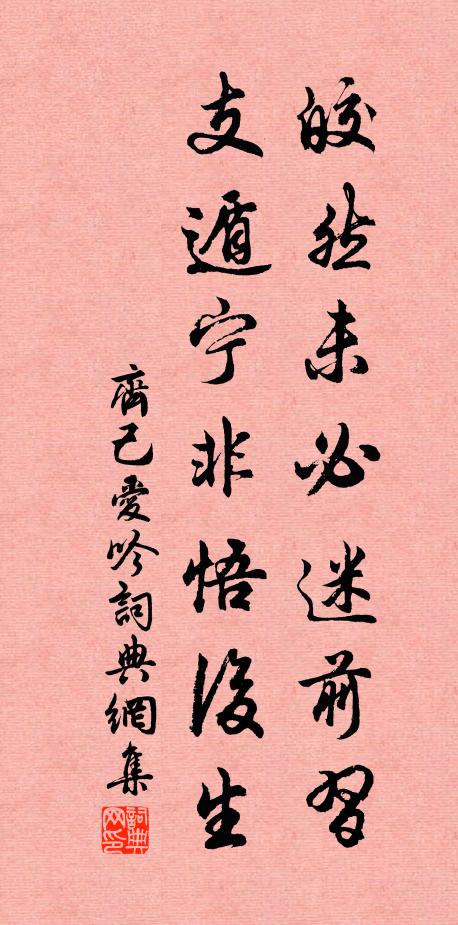 皎然未必迷前習
支遁宁非悟後生
齊己愛吟詞典網集
詞典网印